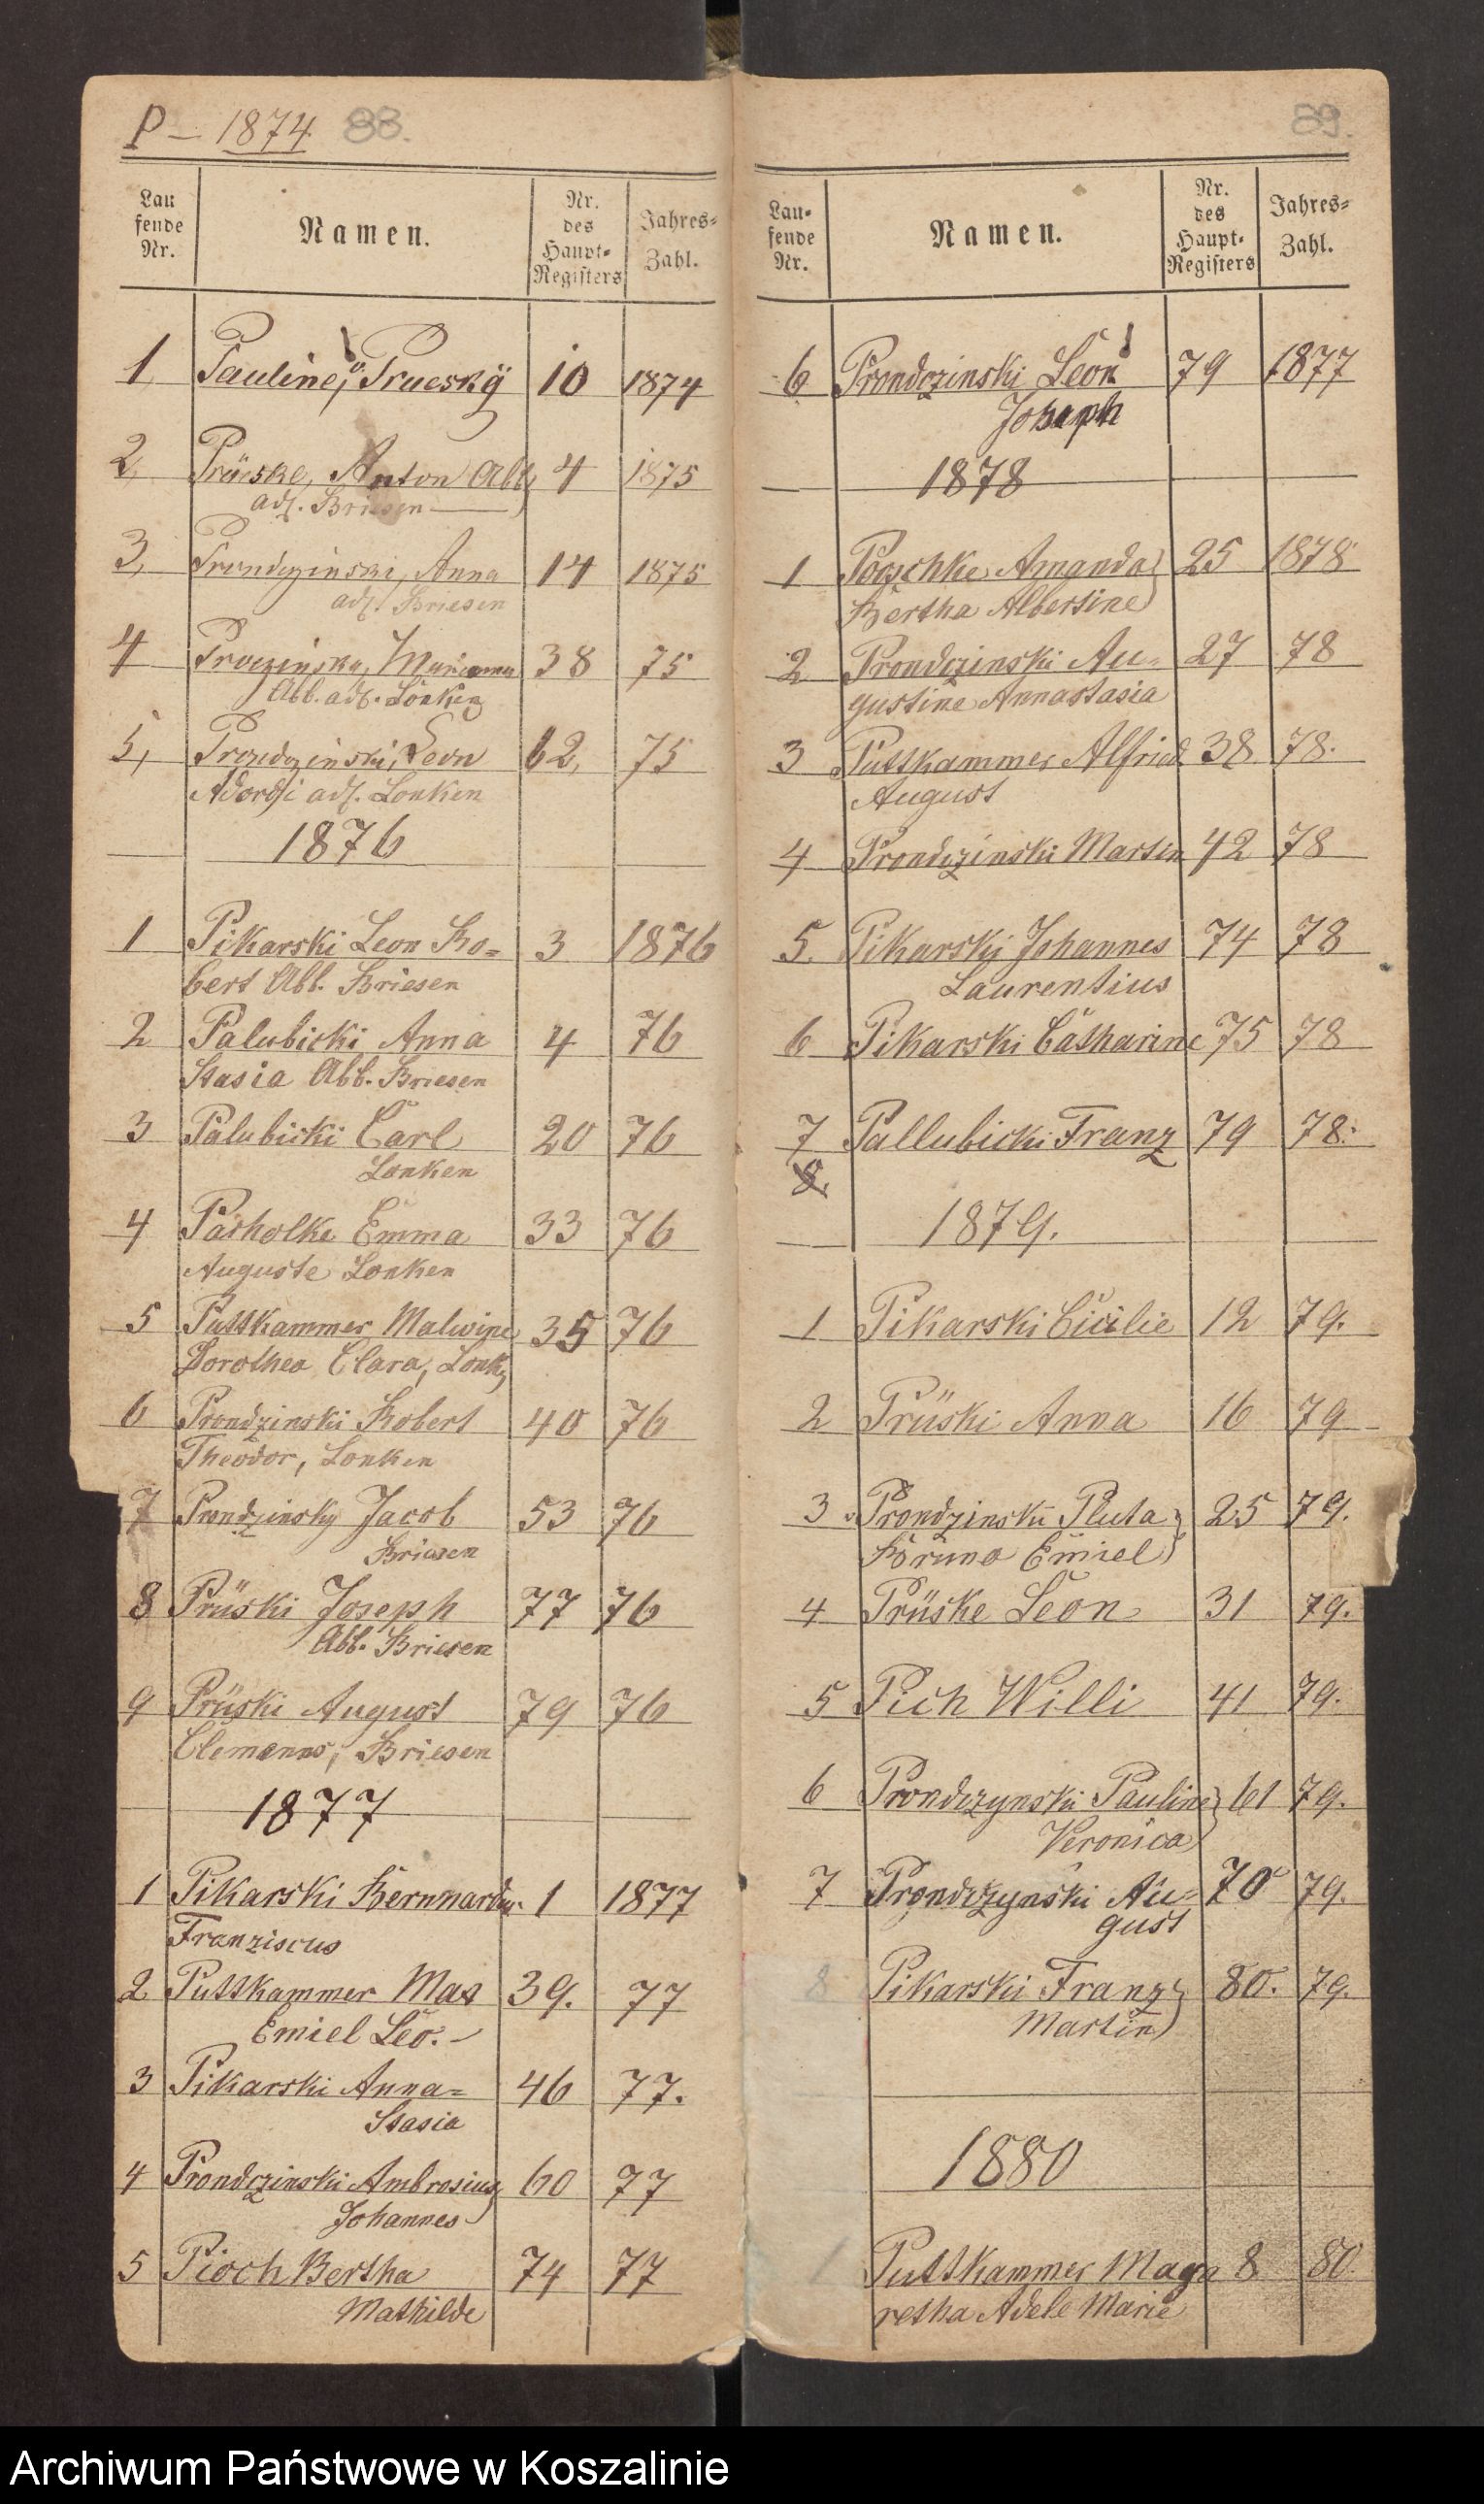 P – 1874 88.
Lau
fende
Nr.
Namen.
Nr.
des
Haupt-
Registers
Jahres-
Zahl.
1 Pauline, Pruesky 10 1874
2, Prüeske, Anton Abb 4 1875
adl. Briesen
3, Prondzinski, Anna 14 1875
adl. Briesen
4 Marianna 38 75
Abb. adl. Lonken
5, Prondzinski, Leon 62, 75
adl. Lonken
1876
1 Pikarski Leon Ro- 3 1876
bert Abb. Briesen
2 Palubicki Anna 4 76
Stasia Abb. Briesen
3 Palubicki Carl 20 76
Lonken
4 Pasholke Emma 33 76
Auguste Lonken
5 Puttkammer Malwine 35 76
Dorothea Clara, Lonk
6 Prondzinski Robert 40 76
Theodor, Lonken
7 Prondzinsky Jacob 53 76
Briesen
8 Prüski Joseph 77 76
Abb. Briesen
9 Prüski August 79 76
Clemenns, Briesen
1877
1 Pikarski Bernnardus 1 1877
Franziscus
2 Puttkammer Max 39. 77
Emiel Leo.
3 Pikarski Anna= 46 77.
Stasia
4 Prondczinski Ambrosius 60 77
Johannes
5 Pioch Bertha 74 77
Mathilde
89.
Lau-
fende
Nr.
Namen.
Nr.
des
Haupt-
Registers
Jahres-
Zahl.
6 Prondczinski Leon 79 1877
Joseph
1878
1 Pooschke Amanda 25 1878
Bertha Albertine
2 Prondczinski Au- 27 78
gustine Annastasia
3 Puttkammer Alfried 38 78.
August
4 Prondczinski Martin 42 78
5. Pikarski Johannes 74 78
Laurentius
6 Pikarski Catharine 75 78
7 Pallubicki Franz 79 78.
8.
1879.
1 Pikarski Cicilie 12 79.
2 Prüski Anna 16 79
3 Prondzinski Pluta 25 79.
Bruno Emiel
4 Prüske Leon 31 79.
5 Pich Willi 41 79.
6 Prondczynski Pauline 61 79.
Veronica
7 Prondczynski Au= 70 79.
gust
8 Pikarski Franz 80. 79.
Martin
1880
Puttkammer Maga 8 80.
retha Adele Marie
Archiwum Państwowe w Koszalinie